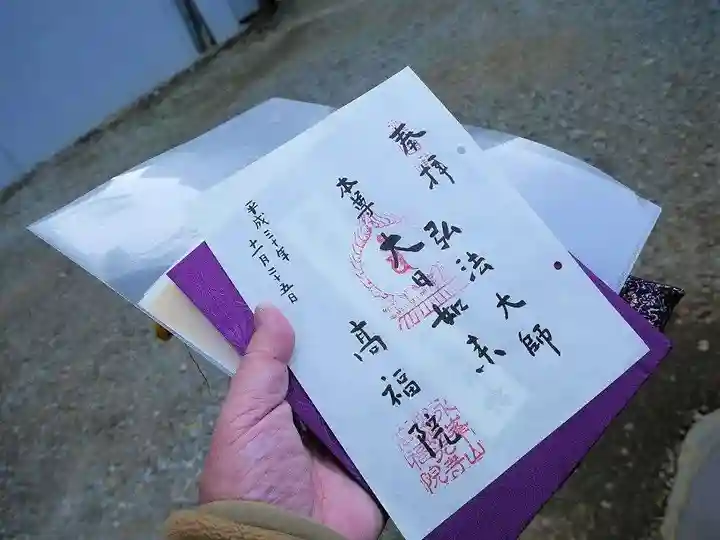 奉拝
弘法大師
本尊
大日如来
高福院
平成三十年
十一月二十五日